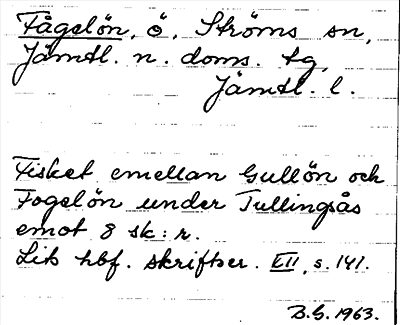 Fågelön, ö, Ströms sn,
Jämtl. n. doms. tg,
Jämtl. l.
Fisket emellan Gullön och
Fogelön under Tullingsås
emot 8 sk: r.
Lits hbf. skriftser. III, s. 141.
B.G. 1963.